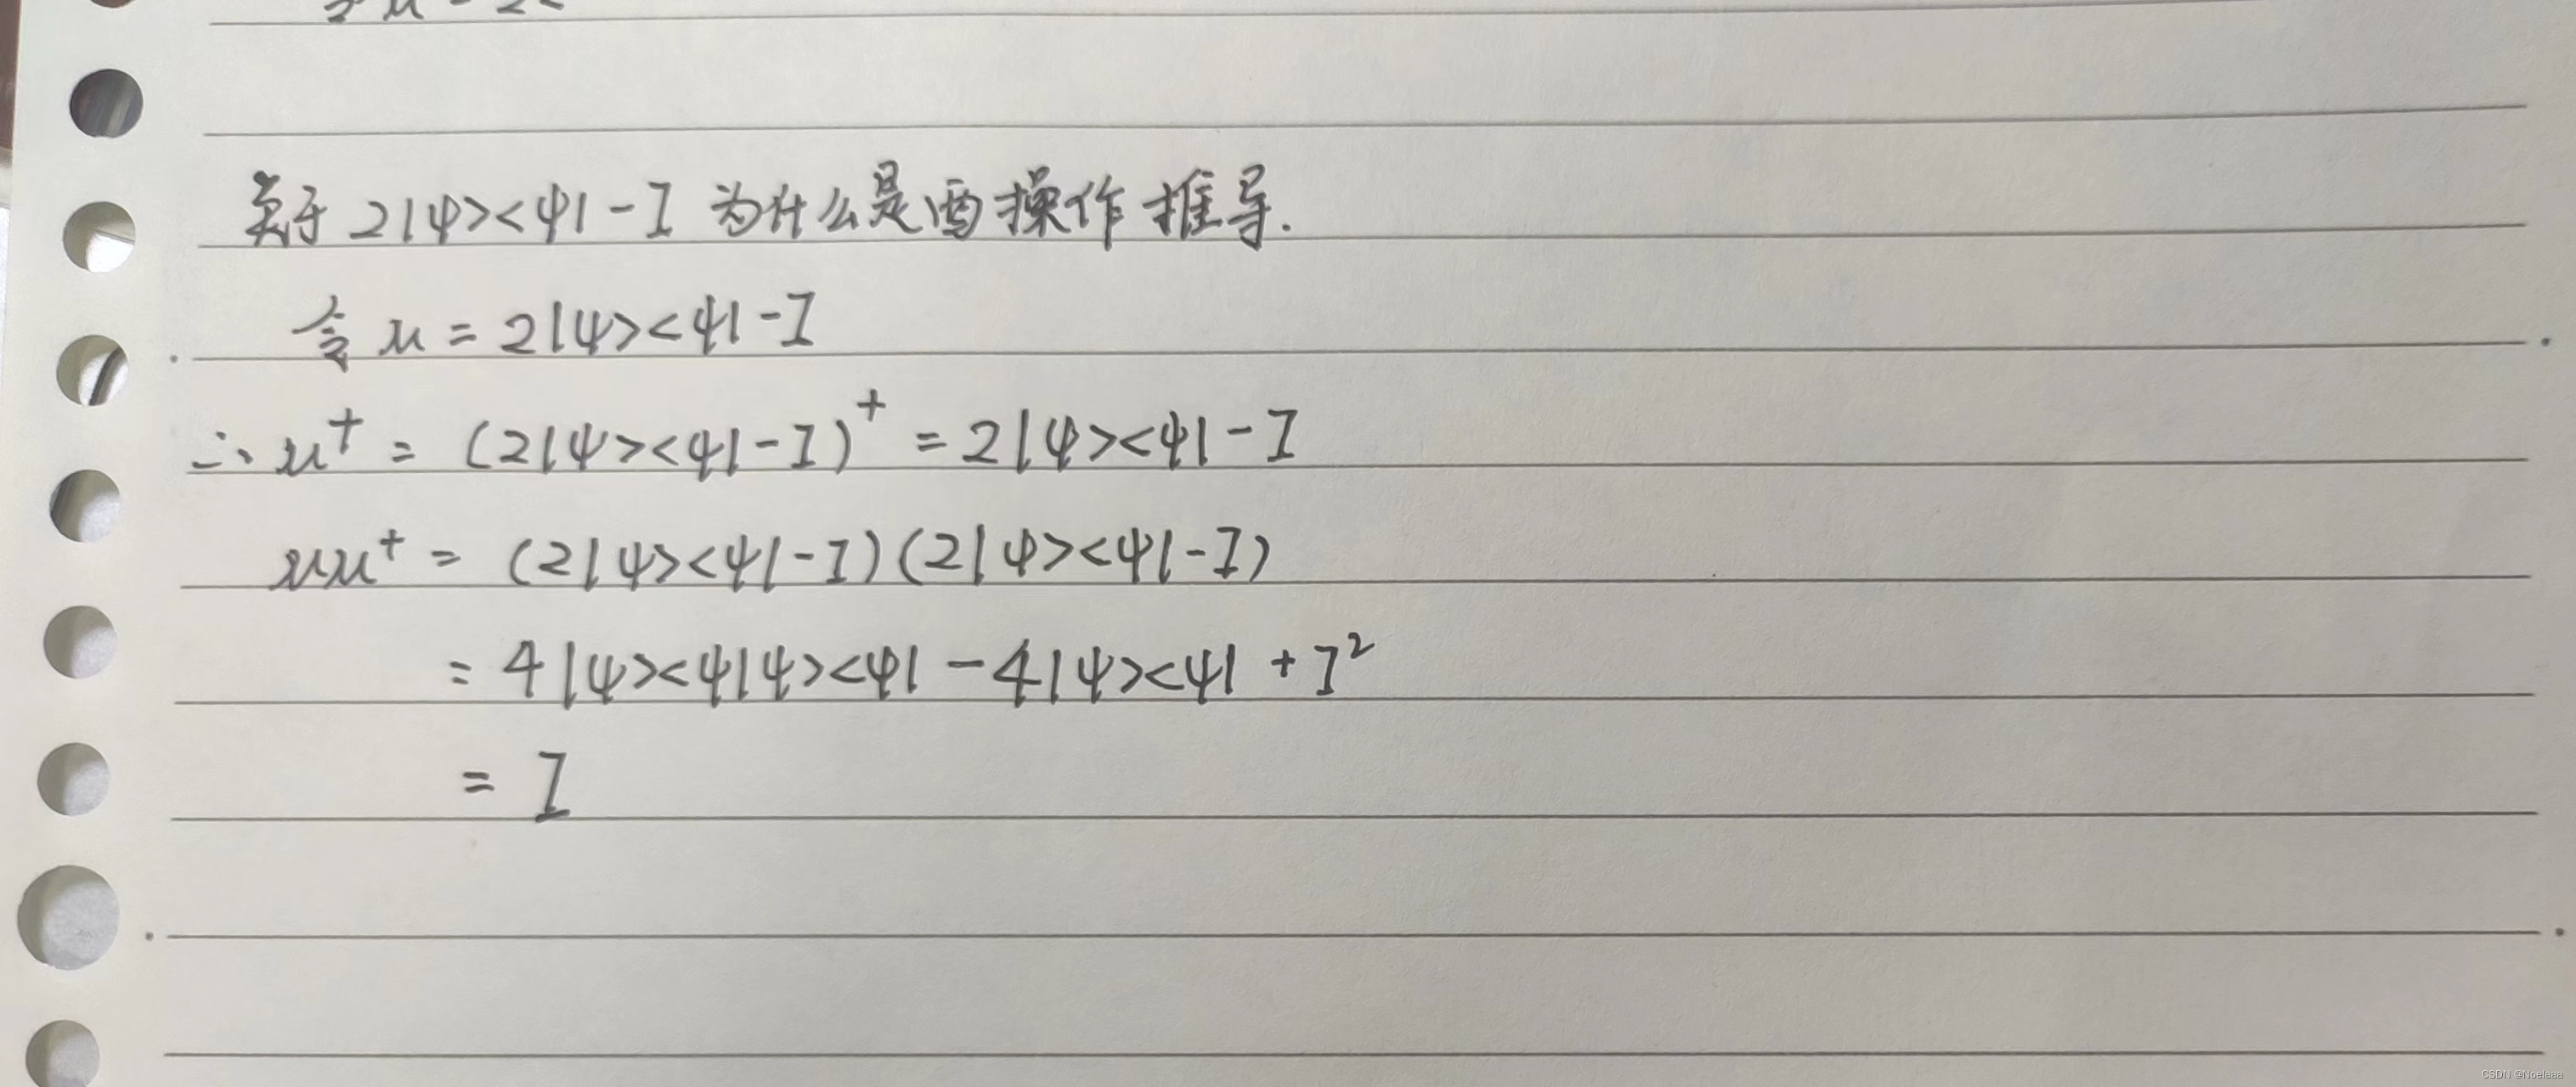 关于 2|ψ><ψ|-I 为什么是酉操作推导.
令 u = 2|ψ><ψ|-I
∴ u⁺ = (2|ψ><ψ|-I)⁺ = 2|ψ><ψ|-I
uu⁺ = (2|ψ><ψ|-I)(2|ψ><ψ|-I)
= 4|ψ><ψ|ψ><ψ| - 4|ψ><ψ| + I²
= I
CSDN @Noelaaa